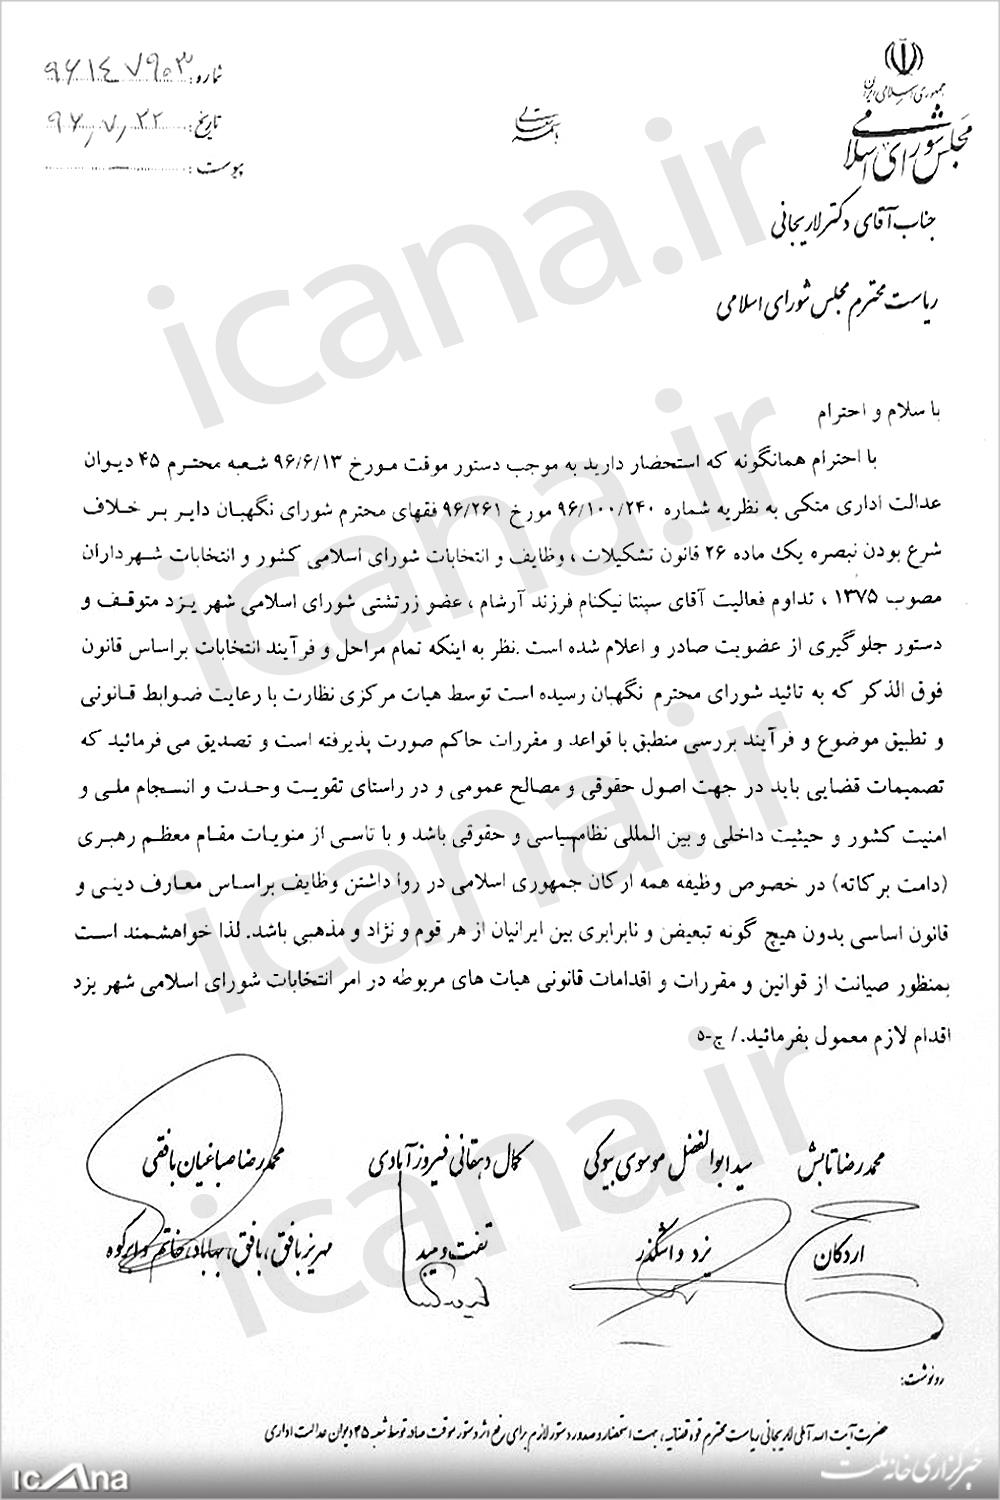 جمهوری اسلامی ایران
مجلس شورای اسلامی
باسمه تعالی
شماره: ۹۶۱۴۷۹۰۳
تاریخ: ۹۶,۷,۲۲
پیوست:
جناب آقای دکتر لاریجانی
ریاست محترم مجلس شورای اسلامی
با سلام و احترام
با احترام همانگونه که استحضار دارید به موجب دستور موقت مورخ ۹۶/۶/۱۳ شعبه محترم ۴۵ دیوان
عدالت اداری متکی به نظریه شماره ۹۶/۱۰۰/۲۴۰ مورخ ۹۶/۲۶۱ فقهای محترم شورای نگهبان دایر بر خلاف
شرع بودن تبصره یک ماده ۲۶ قانون تشکیلات ، وظایف و انتخابات شورای اسلامی کشور و انتخابات شهرداران
مصوب ۱۳۷۵ ، تداوم فعالیت آقای سپنتا نیکنام فرزند آرشام ، عضو زرتشتی شورای اسلامی شهر یزد متوقف و
دستور جلوگیری از عضویت صادر و اعلام شده است .نظر به اینکه تمام مراحل و فرآیند انتخابات براساس قانون
فوق الذکر که به تائید شورای محترم نگهبان رسیده است توسط هیات مرکزی نظارت با رعایت ضوابط قانونی
و تطبیق موضوع و فرآیند بررسی منطبق با قواعد و مقررات حاکم صورت پذیرفته است و تصدیق می فرمائید که
تصمیمات قضایی باید در جهت اصول حقوقی و مصالح عمومی و در راستای تقویت وحدت و انسجام ملی و
امنیت کشور و حیثیت داخلی و بین المللی نظام سیاسی و حقوقی باشد و با تاسی از منویات مقام معظم رهبری
(دامت برکاته) در خصوص وظیفه همه ارکان جمهوری اسلامی در روا داشتن وظایف براساس معارف دینی و
قانون اساسی بدون هیچ گونه تبعیض و نابرابری بین ایرانیان از هر قوم و نژاد و مذهبی باشد. لذا خواهشمند است
بمنظور صیانت از قوانین و مقررات و اقدامات قانونی هیات های مربوطه در امر انتخابات شورای اسلامی شهر یزد
اقدام لازم معمول بفرمائید./ ج-۵
محمدرضا تابش سید ابوالفضل موسوی بیوکی کمال دهقانی فیروزآبادی محمدرضا صباغیان بافقی
اردکان یزد و اشکذر تفت و میبد مهریز بافق، بافق، بهاباد، خاتم و ابرکوه
رونوشت:
حضرت آیت اله آملی لاریجانی ریاست محترم قوه قضائیه، جهت استحضار و صدور دستور لازم برای رفع اثر دستور موقت صادره توسط شعبه ۴۵ دیوان عدالت اداری
icana.ir
icana.ir
icana.ir
icana.ir
ICAna
خبرگزاری خانه ملت